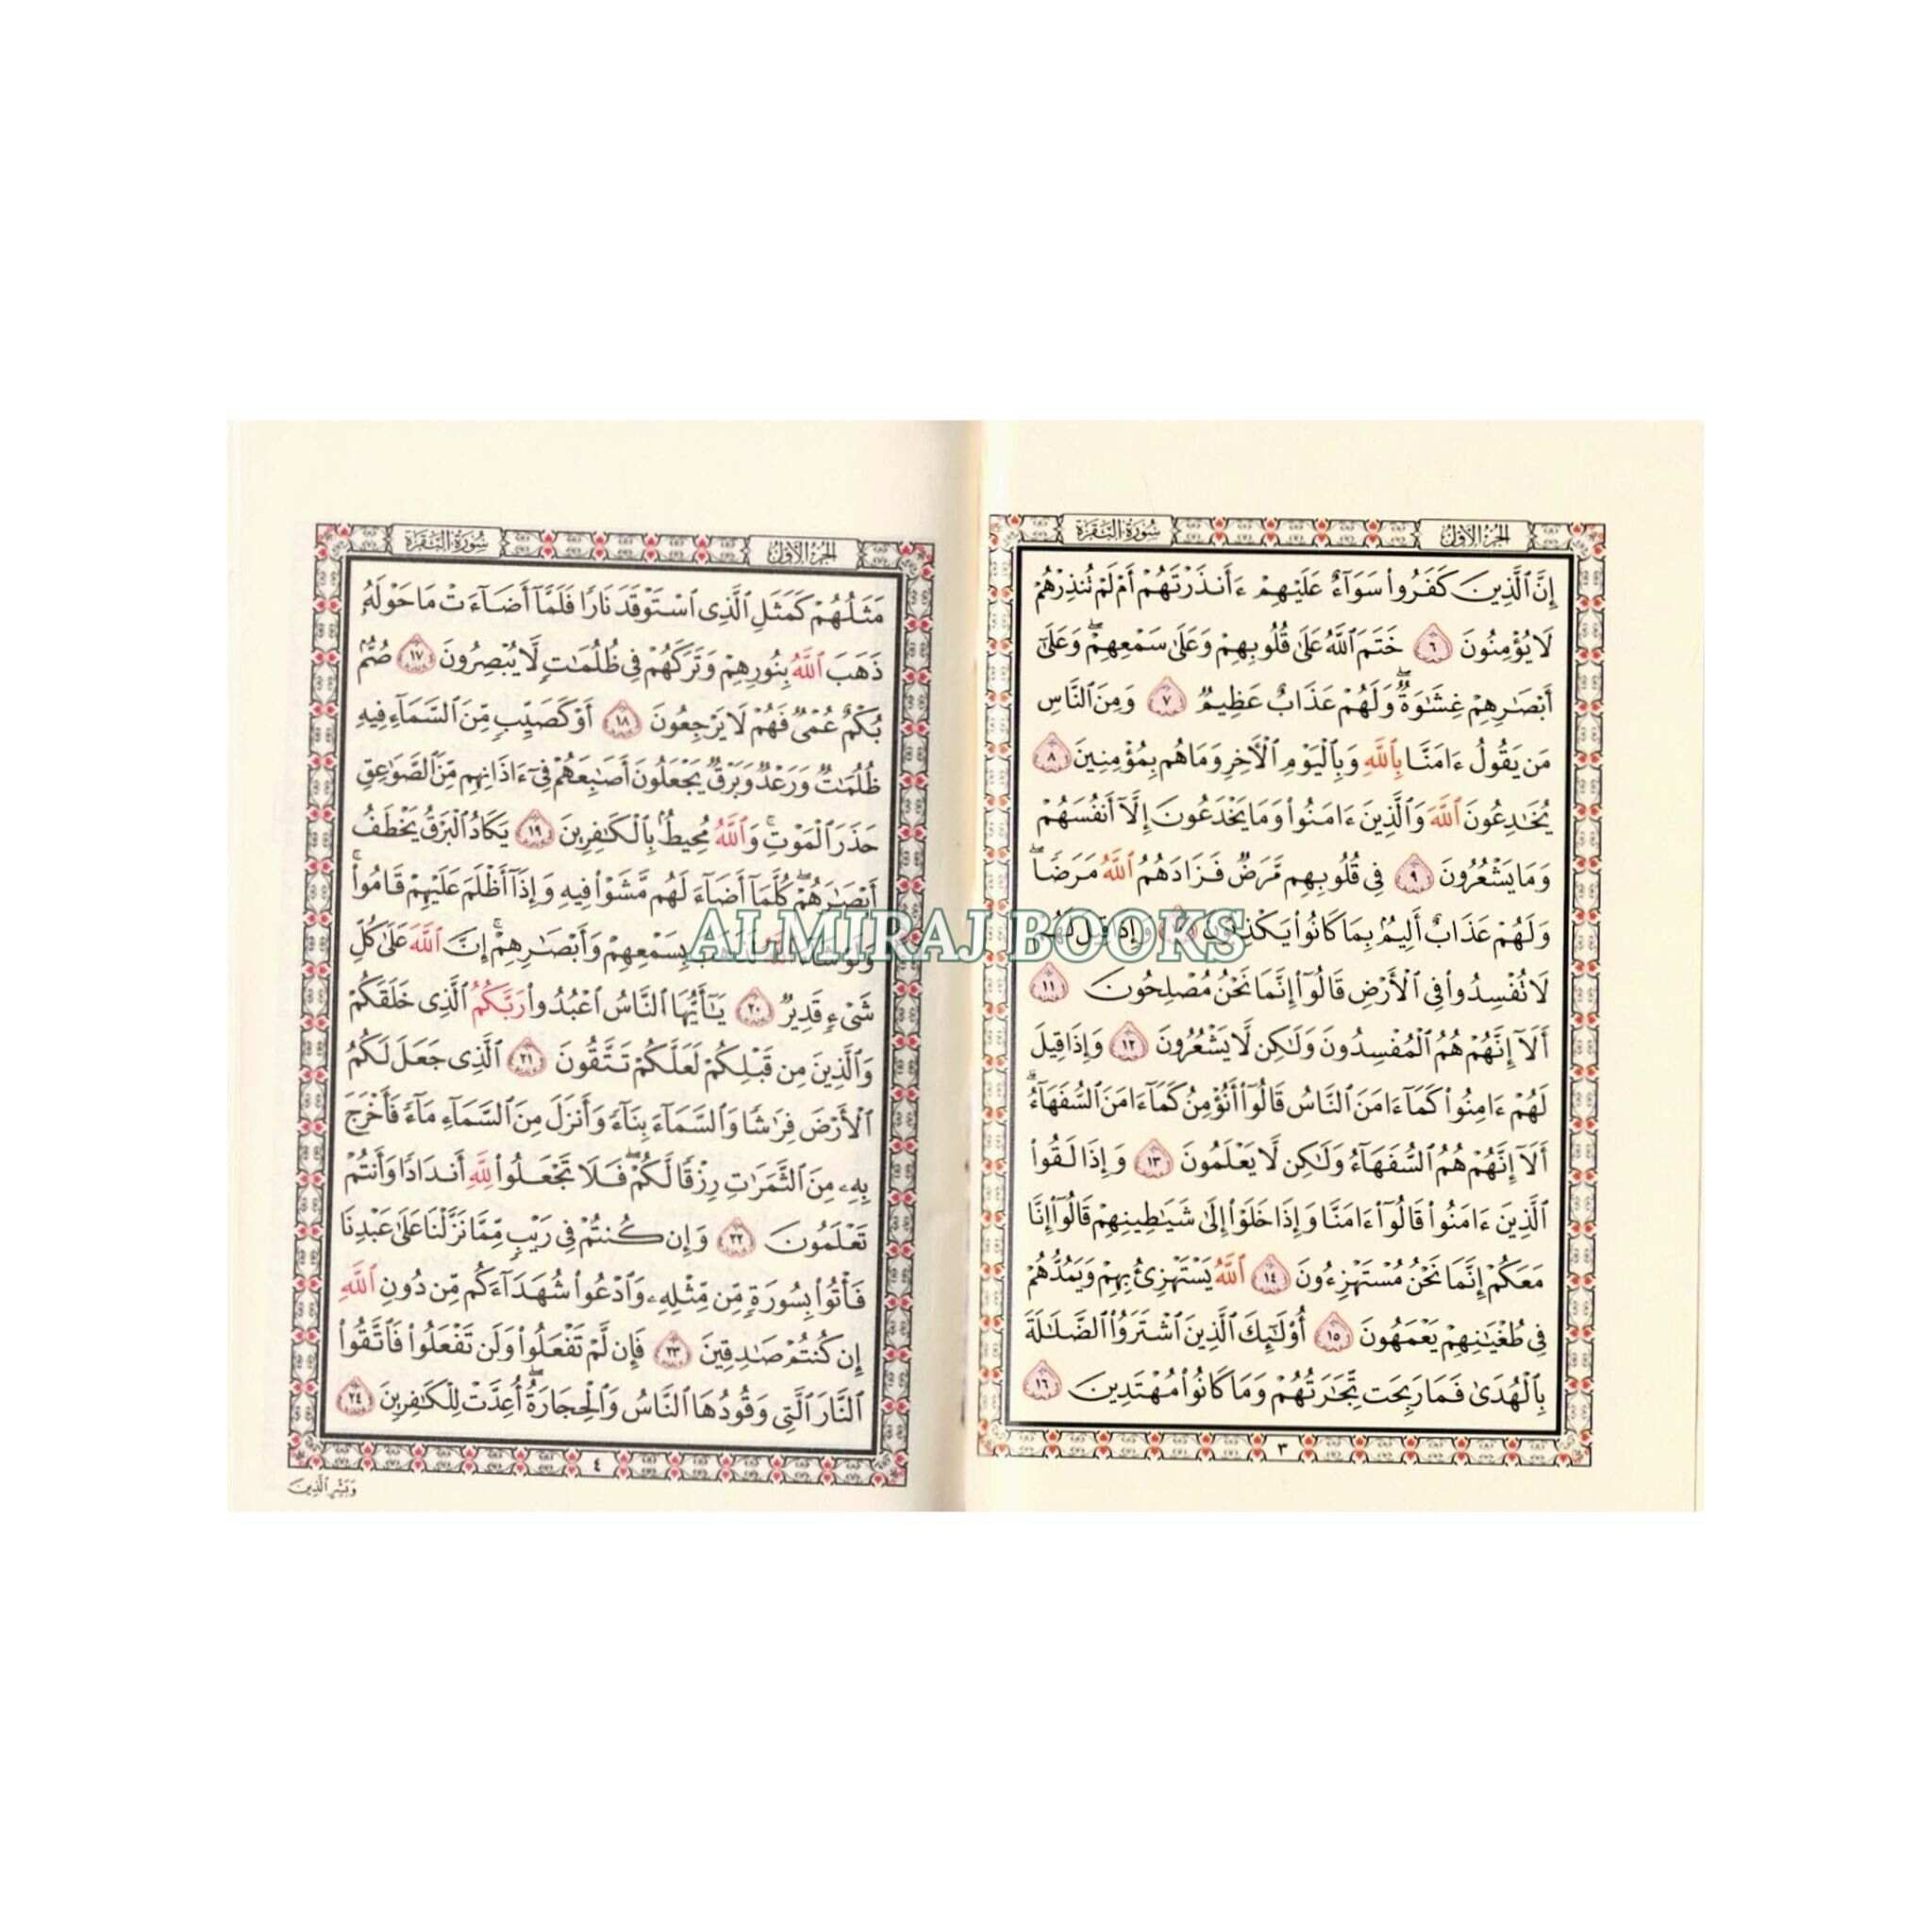 الجزء الأول
سورة البقرة
إِنَّ ٱلَّذِينَ كَفَرُوا۟ سَوَآءٌ عَلَيْهِمْ ءَأَنذَرْتَهُمْ أَمْ لَمْ تُنذِرْهُمْ
لَا يُؤْمِنُونَ ٦ خَتَمَ ٱللَّهُ عَلَىٰ قُلُوبِهِمْ وَعَلَىٰ سَمْعِهِمْ ۖ وَعَلَىٰٓ
أَبْصَـٰرِهِمْ غِشَـٰوَةٌ ۖ وَلَهُمْ عَذَابٌ عَظِيمٌ ٧ وَمِنَ ٱلنَّاسِ
مَن يَقُولُ ءَامَنَّا بِٱللَّهِ وَبِٱلْيَوْمِ ٱلْـَٔاخِرِ وَمَا هُم بِمُؤْمِنِينَ ٨
يُخَـٰدِعُونَ ٱللَّهَ وَٱلَّذِينَ ءَامَنُوا۟ وَمَا يَخْدَعُونَ إِلَّآ أَنفُسَهُمْ
وَمَا يَشْعُرُونَ ٩ فِى قُلُوبِهِم مَّرَضٌ فَزَادَهُمُ ٱللَّهُ مَرَضًا ۖ
وَلَهُمْ عَذَابٌ أَلِيمٌۢ بِمَا كَانُوا۟ وَإِذَا قِيلَ لَهُمْ
لَا تُفْسِدُوا۟ فِى ٱلْأَرْضِ قَالُوٓا۟ إِنَّمَا نَحْنُ مُصْلِحُونَ ١١
أَلَآ إِنَّهُمْ هُمُ ٱلْمُفْسِدُونَ وَلَـٰكِن لَّا يَشْعُرُونَ ١٢ وَإِذَا قِيلَ
لَهُمْ ءَامِنُوا۟ كَمَآ ءَامَنَ ٱلنَّاسُ قَالُوٓا۟ أَنُؤْمِنُ كَمَآ ءَامَنَ ٱلسُّفَهَآءُ ۗ
أَلَآ إِنَّهُمْ هُمُ ٱلسُّفَهَآءُ وَلَـٰكِن لَّا يَعْلَمُونَ ١٣ وَإِذَا لَقُوا۟
ٱلَّذِينَ ءَامَنُوا۟ قَالُوٓا۟ ءَامَنَّا وَإِذَا خَلَوْا۟ إِلَىٰ شَيَـٰطِينِهِمْ قَالُوٓا۟ إِنَّا
مَعَكُمْ إِنَّمَا نَحْنُ مُسْتَهْزِءُونَ ١٤ ٱللَّهُ يَسْتَهْزِئُ بِهِمْ وَيَمُدُّهُمْ
فِى طُغْيَـٰنِهِمْ يَعْمَهُونَ ١٥ أُو۟لَـٰٓئِكَ ٱلَّذِينَ ٱشْتَرَوُا۟ ٱلضَّلَـٰلَةَ
بِٱلْهُدَىٰ فَمَا رَبِحَت تِّجَـٰرَتُهُمْ وَمَا كَانُوا۟ مُهْتَدِينَ ١٦
٣
الجزء الأول
سورة البقرة
مَثَلُهُمْ كَمَثَلِ ٱلَّذِى ٱسْتَوْقَدَ نَارًا فَلَمَّآ أَضَآءَتْ مَا حَوْلَهُۥ
ذَهَبَ ٱللَّهُ بِنُورِهِمْ وَتَرَكَهُمْ فِى ظُلُمَـٰتٍ لَّا يُبْصِرُونَ ١٧ صُمٌّۢ
بُكْمٌ عُمْىٌ فَهُمْ لَا يَرْجِعُونَ ١٨ أَوْ كَصَيِّبٍ مِّنَ ٱلسَّمَآءِ فِيهِ
ظُلُمَـٰتٌ وَرَعْدٌ وَبَرْقٌ يَجْعَلُونَ أَصَـٰبِعَهُمْ فِىٓ ءَاذَانِهِم مِّنَ ٱلصَّوَٰعِقِ
حَذَرَ ٱلْمَوْتِ ۚ وَٱللَّهُ مُحِيطٌۢ بِٱلْكَـٰفِرِينَ ١٩ يَكَادُ ٱلْبَرْقُ يَخْطَفُ
أَبْصَـٰرَهُمْ ۖ كُلَّمَآ أَضَآءَ لَهُم مَّشَوْا۟ فِيهِ وَإِذَآ أَظْلَمَ عَلَيْهِمْ قَامُوا۟ ۚ
وَلَوْ بِسَمْعِهِمْ وَأَبْصَـٰرِهِمْ ۚ إِنَّ ٱللَّهَ عَلَىٰ كُلِّ
شَىْءٍ قَدِيرٌ ٢٠ يَـٰٓأَيُّهَا ٱلنَّاسُ ٱعْبُدُوا۟ رَبَّكُمُ ٱلَّذِى خَلَقَكُمْ
وَٱلَّذِينَ مِن قَبْلِكُمْ لَعَلَّكُمْ تَتَّقُونَ ٢١ ٱلَّذِى جَعَلَ لَكُمُ
ٱلْأَرْضَ فِرَٰشًا وَٱلسَّمَآءَ بِنَآءً وَأَنزَلَ مِنَ ٱلسَّمَآءِ مَآءً فَأَخْرَجَ
بِهِۦ مِنَ ٱلثَّمَرَٰتِ رِزْقًا لَّكُمْ ۖ فَلَا تَجْعَلُوا۟ لِلَّهِ أَندَادًا وَأَنتُمْ
تَعْلَمُونَ ٢٢ وَإِن كُنتُمْ فِى رَيْبٍ مِّمَّا نَزَّلْنَا عَلَىٰ عَبْدِنَا
فَأْتُوا۟ بِسُورَةٍ مِّن مِّثْلِهِۦ وَٱدْعُوا۟ شُهَدَآءَكُم مِّن دُونِ ٱللَّهِ
إِن كُنتُمْ صَـٰدِقِينَ ٢٣ فَإِن لَّمْ تَفْعَلُوا۟ وَلَن تَفْعَلُوا۟ فَٱتَّقُوا۟
ٱلنَّارَ ٱلَّتِى وَقُودُهَا ٱلنَّاسُ وَٱلْحِجَارَةُ ۖ أُعِدَّتْ لِلْكَـٰفِرِينَ ٢٤
٤
وَبَشِّرِ ٱلَّذِينَ
ALMIRAJ BOOKS